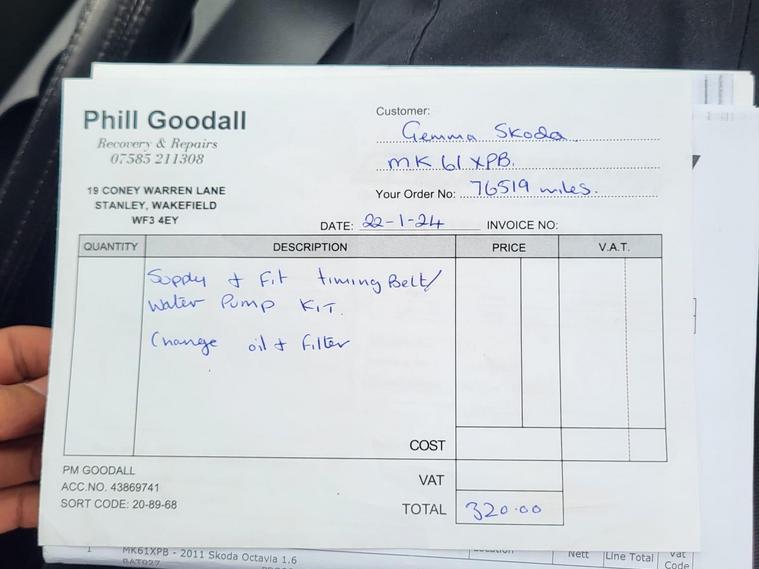 Phill Goodall
Recovery & Repairs
07585 211308
19 CONEY WARREN LANE
STANLEY, WAKEFIELD
WF3 4EY
Customer:
Gemma Skoda
MK 61 XPB.
Your Order No: 76519 miles.
DATE: 22-1-24 INVOICE NO:
QUANTITY DESCRIPTION PRICE V.A.T.
Supply & Fit timing Belt/
Water Pump KIT.
Change oil & Filter
COST
VAT
TOTAL 320.00
PM GOODALL
ACC.NO. 43869741
SORT CODE: 20-89-68
1 MK61XPB - 2011 Skoda Octavia 1.6 Location Nett Line Total Vat
Code